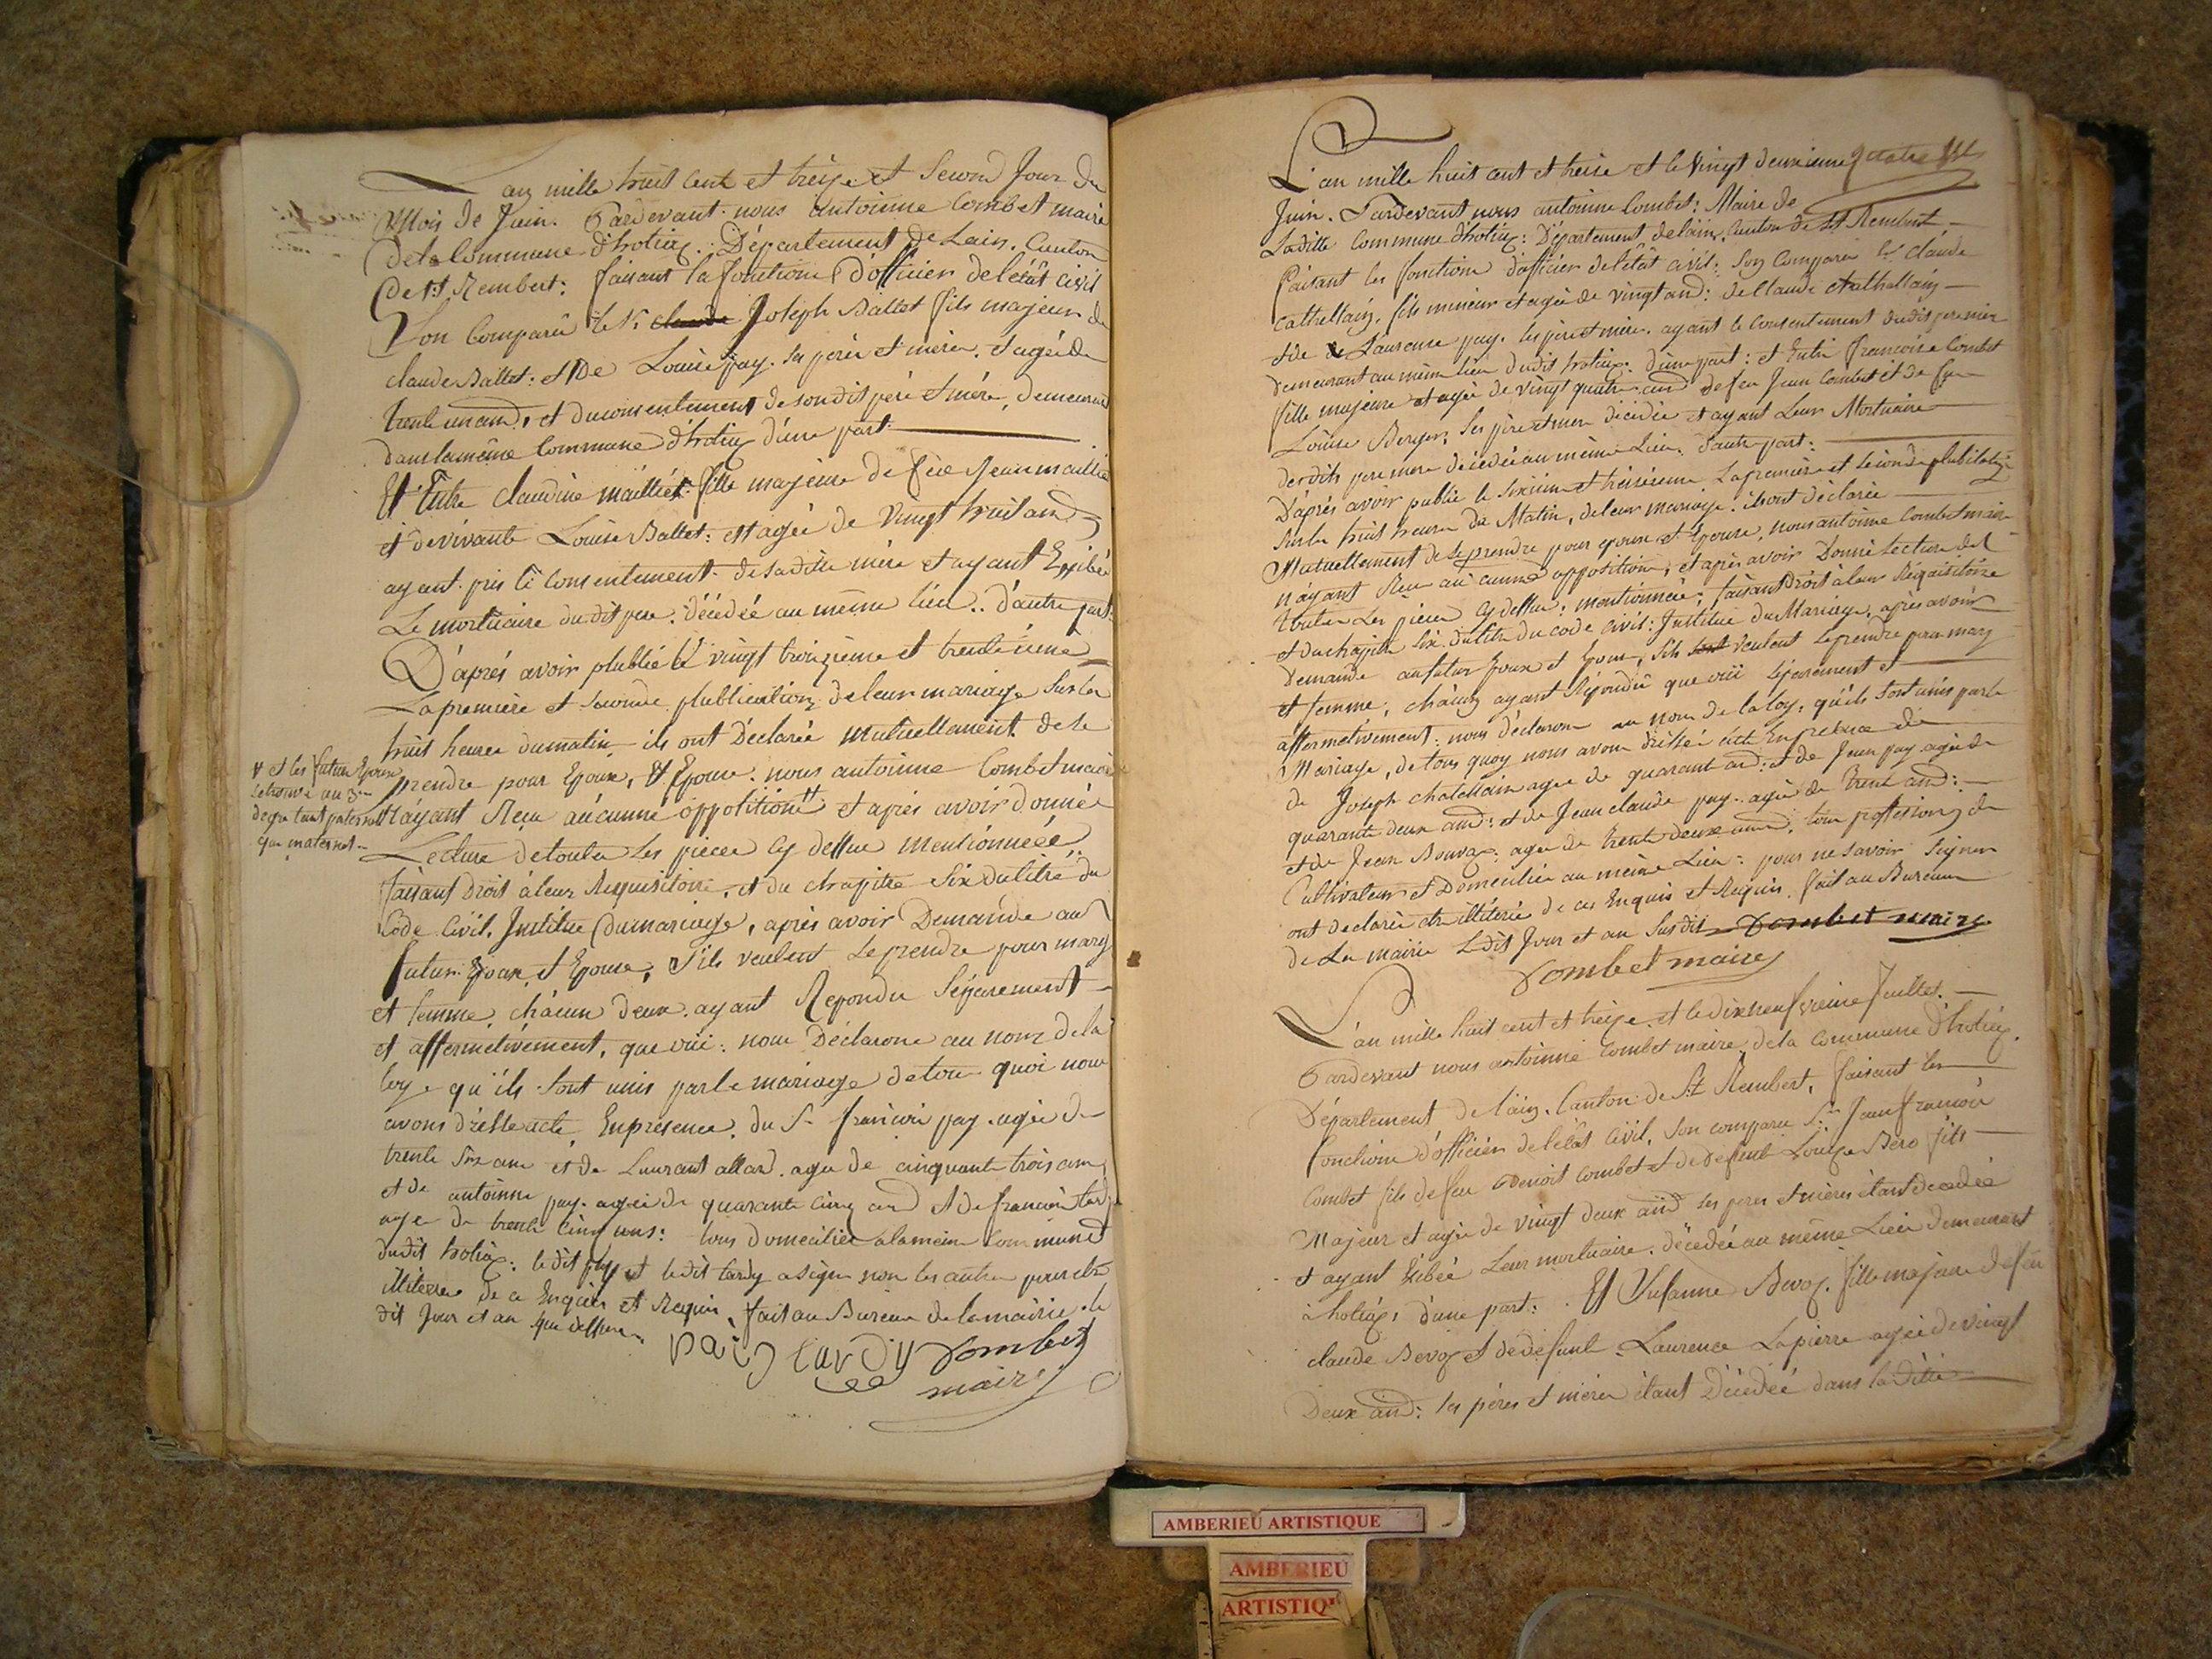 L'an mille huit cent et treize et Second Jour du
Mois de Juin. Pardevant nous antoinne Combet maire
de la Commune d'hotiaz. Département de Lain. Canton
de St Rembert: faisant la fonctions d'officier de létât civil
Son Comparû le Sr claude Joseph Ballet fils majeur de
claude Ballet: et de Louise pay. ses pères et mères. et agée de
trente un and. et du consentement de son dit père et mère, demeurant
dans la même Commune d'hotiaz d'une part.
Et Entre claudine mailliet fille majeure de feüe Jean maillie
et de vivante Louise Ballet: et agée de vingt huit and
ayant pris le consentement de sa ditte mère et ayant Exibée
Le mortuaire du dit pere. décédée au même lieu.. d'autre part.
D'aprés avoir plublié le vingt troizième et trentième
La première et seconde plublication de leur mariage sur les
huit heures du matin ils ont Déclarée mutuellement de se
prendre pour Epoux, et Epouse. nous antoinne Combet maire
nayant Reçu aucunne oppotitione et après avoir donnée
Lecture de toutes Les pieces cy dessue mentionneeé
faisant Droit à leur Requisitoire, et du chapitre Six du titre du
Code Civil, Institue du mariage, après avoir Demande aux
futurs Epoux, et Epouse, s'ils veulent se prendre pour mary
et femme, chacun deux. ayant Repondu Séparement
et affermetivement, que oüi: nous Déclarons au nom de la
loye qu'ils sont unis par le mariage de tous quoi nous
avons dressé acte, En présence, du Sr francois pay. agée de
trente Six ans et de Laurant allard. agée de cinquante trois ans
et de antoinne pay. agée de quarante cinq and et de francois tardy
agée de trente cinq ans: tous domecilier a la meme Commune
du dit hotiaz: le dit pay et le dit tardy a signe non les autres pour etre
illiterer de ce Enquis et Requis, fait au Bureau de la mairie le
dit Jour et an que dessue
pay tardy Combet
maire
et les futurs Epoux
se trouve au 3me
degre tant paternel
que maternel
L'an mille huit cent et treise et le vingt deuxieme
Juin. Pardevant nous antoinne Combet: Maire de
Laditte Commune d'hotiaz: Département de lain. Canton de St Rembert
faisant les fonctions d'officier de létât civil: Son Comparû Sr claude
cathellain, fils mineur et agée de vingt and: de Claude Chathellain
et de Laurence pay. ses père et mère. ayant le consentement dudit premier
Demeurant au même lieu du dit hotiaz. d'une part: et Entre francoise Combet
fille majeure et agée de vingt quatre and de feu Jean Combet et de feu
Louise Berger, Ses père et mere décédée et ayant Leur Mortuaire
desdits pere mere décédée au même Lieu. d'autre part:
D'aprés avoir publié le Sixieme et treizieme La premiere et seconde plublication
sur les huit heures du Matin, de leur mariage. ils ont déclarée
Mutuellement de se prendre pour epoux et Epouse, nous antoine Combet maire
n'ayant Reçu aucunne oppotition, et après avoir Donnée Lecture de
toutes Les pieces cy dessue, mentionnée, faisant Droit à leur Réquisitoire
et du chapitre Six du titre du code civil: Institue du Mariage, après avoir
Demande au futur Epoux et Epouse, s'ils sont veulent se prendre pour mary
et femme, châcun ayant Répondû que oüi séparement et
affermetivement: nous déclarons au nom de la loy, qu'ils sont unis par le
Mariage, de tous quoy nous avons dressée acte En presence de
de Joseph chatellain agée de quarant and: et de Jean pay agée de
quarante deux and: et de Jean claude pay. agée de trent and:
et de Jean Bouvaz: agee de trente deux and. tous profession de
Cultivateur et Domecilier au même Lieu: pour ne savoir Signer
ont declarée etre illiterée de ces Enquis et Requis. fait au Bureau
de La mairie Ledit Jour et an Susdit Combet maire
Combet maire
L'an mille huit cent et treize et le dixneufvieme Juillet.
Pardevant nous antoinne Combet maire de la Commune d'hotiaz.
Département de lain. Canton de St Rembert, faisant les
fonctions d'officier de létât Civil, Son comparu Sr Jean francois
Combet fils de feu Benoit Combet et de defunte Louise Bero fils
Majeur et agée de vingt deux and ses peres et mères étant decedée
et ayant Exibée Leur mortuaire. décédée au même Lieu demeurant
à hotiaz, d'une part: Et Susanne Bevoz. fille majeure de feu
claude Bevoz et de defunte Laurence Lapierre agée de vingt
Deux and: ses pères et mères étant Décédée dans la ditte
AMBERIEU ARTISTIQUE
AMBERIEU
ARTISTIQ